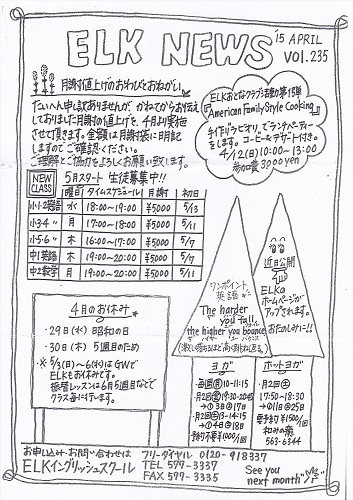 ELK NEWS '15 APRIL
VOL.235
月謝値上げのおわびとおねがい
たいへん申し訳ありませんが、かねてからお伝え
しておりました月謝の値上げを、4月より実施
させて頂きます。金額は月謝袋に明記
しますのでご確認ください。
ご理解とご協力をよろしくお願い致します。
ELKおとなクラブ活動第15弾
『American Family Style Cooking』
手作りラビオリ、でランチパーティー
をします。コーヒー&デザート付き。
4/12(日)10:00~13:00
参加費3000yen
NEW CLASS
5月スタート 生徒募集中!!
曜日 タイムスケジュール 月謝 初日
小1・2英語 水 18:00~19:00 ¥5000 5/13
小3・4〃 月 17:00~18:00 ¥5000 5/11
小5・6〃 木 16:00~17:00 ¥5000 5/7
中1英語 木 19:00~20:00 ¥5000 5/7
中2数学 月 19:00~20:00 ¥5000 5/11
ワンポイント
英語
The harder
you fall,
the higher you bounce
近日公開
ELKの
ホームページが
アップされます。
おたのしみに!!
4月のお休み
・29日(水) 昭和の日
・30日(木) 5週目のため
※5/3(日)~6(水)はGWで
ELKもお休みです。
振替レッスンは6月5週目などで
クラス毎に行います。
ヨガ
・毎週(月)10-11:15
・月2回(金)19:30-20:45
→①3日②17日
・月2回(土)13-14:15
→①4日②18日
予約不要¥1000/1回
ホットヨガ
・月2回(土)
17:50-18:30
→①11日②25日
要予約¥1500/1回
和みの風
563-6344
お申し込み・お問い合わせは フリーダイヤル 0120-918337
ELKイングリッシュスクール TEL 577-3337
FAX 577-3335
See you
next month